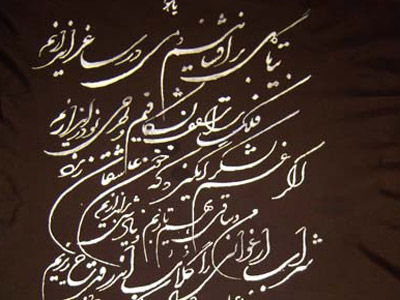 یا هو
بیا تا گل برافشانیم و می در ساغر اندازیم
فلک را سقف بشکافیم و طرحی نو دراندازیم
اگر غم لشکر انگیزد که خون عاشقان ریزد
من و ساقی بهم تازیم و بنیادش براندازیم
شراب ارغوانی را گلاب اندر قدح ریزیم